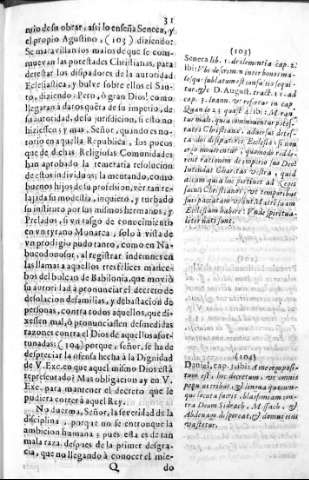 31
mio de su obrar, assi lo enseña Seneca, y
el propio Agustino, (103) diziendo:
Se maravillan los malos de que se com-
muevan las potestades Christianas, para
detestar los disipadores de la autoridad
Eclesiastica, y buelve sobre ellos el San-
to, diziendo: Pero, ô gran Dios! como
llegaran à daros queta de su imperio, de
su autoridad, de su juridicion, si esto no
hiziessen? y mas, Señor, quando es no-
torio en aquella Republica, los pocos
que de dichas Religiosas Comunidades
han aprobado la resolucion
de estos individuos; lamentando, como
buenos hijos de su profession, ver tan re-
lajada su modestia, inquieto, y turbado
su instituto por los mismos hermanos, y
Prelados, si un rasgo de conocimiento
en un tyrano Monarca, solo à vista de
un prodigio pudo tanto, como en Na-
bucodonosor, al registrar indemnes en
las llamas a aquellos tres felices mance-
bos del bolcan de Babilonia, que moviò
su autoridad à pronunciar el decreto de
desolacion de familias, y debastacion de
personas, contra todos aquellos, que di-
xessen mal, ò pronunciassen desmedidas
razones contra el Dios de aquellos afor-
tunados: (104) porque, señor, se ha de
despreciar la ofensa hecha à la Dignidad
de V. Exc. en que aquel mismo Dios està
representado? Mas obligacion ay en V.
Exc. para mantener el decreto que le
pudiera correr à aquel Rey.
No duerma, Señor, la severidad de la
disciplina, porque no se entronque la
ambicion humana; pues esta es de tan
mala raza, despues de la primer desgra-
cia, que no llegando à conocer el mie-
Q do
(103)
Seneca lib. 1. de clementia cap. 2.
Ibi:
tur. & D. August. tract. 11. ad
cap. 3. Ioann. & refertur in cap.
Quando 23. quæst. 4. ibi: Miran
tur mali, quia commoventur potes-
tates Christianæ, adversus detes-
tandos dissipatores Ecclesiæ: si non
ergo moverentur, quomodo redde-
rent rationem de imperio suo Deo?
Intendat Charitas vestra, quid
dicam, quia hoc pertinet ad Reges
sæculi Christianos, ut temporibus
suis pacatam velint Matrem suam
Ecclesiam habere: Unde spiritua-
liter nati sunt.
(104)
Daniel, cap. 3. ibi: A me ergo posi-
tum est, hoc decretum. ut omnis
populus, tribus, & lingua quæcum-
que locuta fuerit, blasfemiam con-
tra Deum Sidrach, Missach, &
Abdenago, dispereat, & domus eius
vastetur.